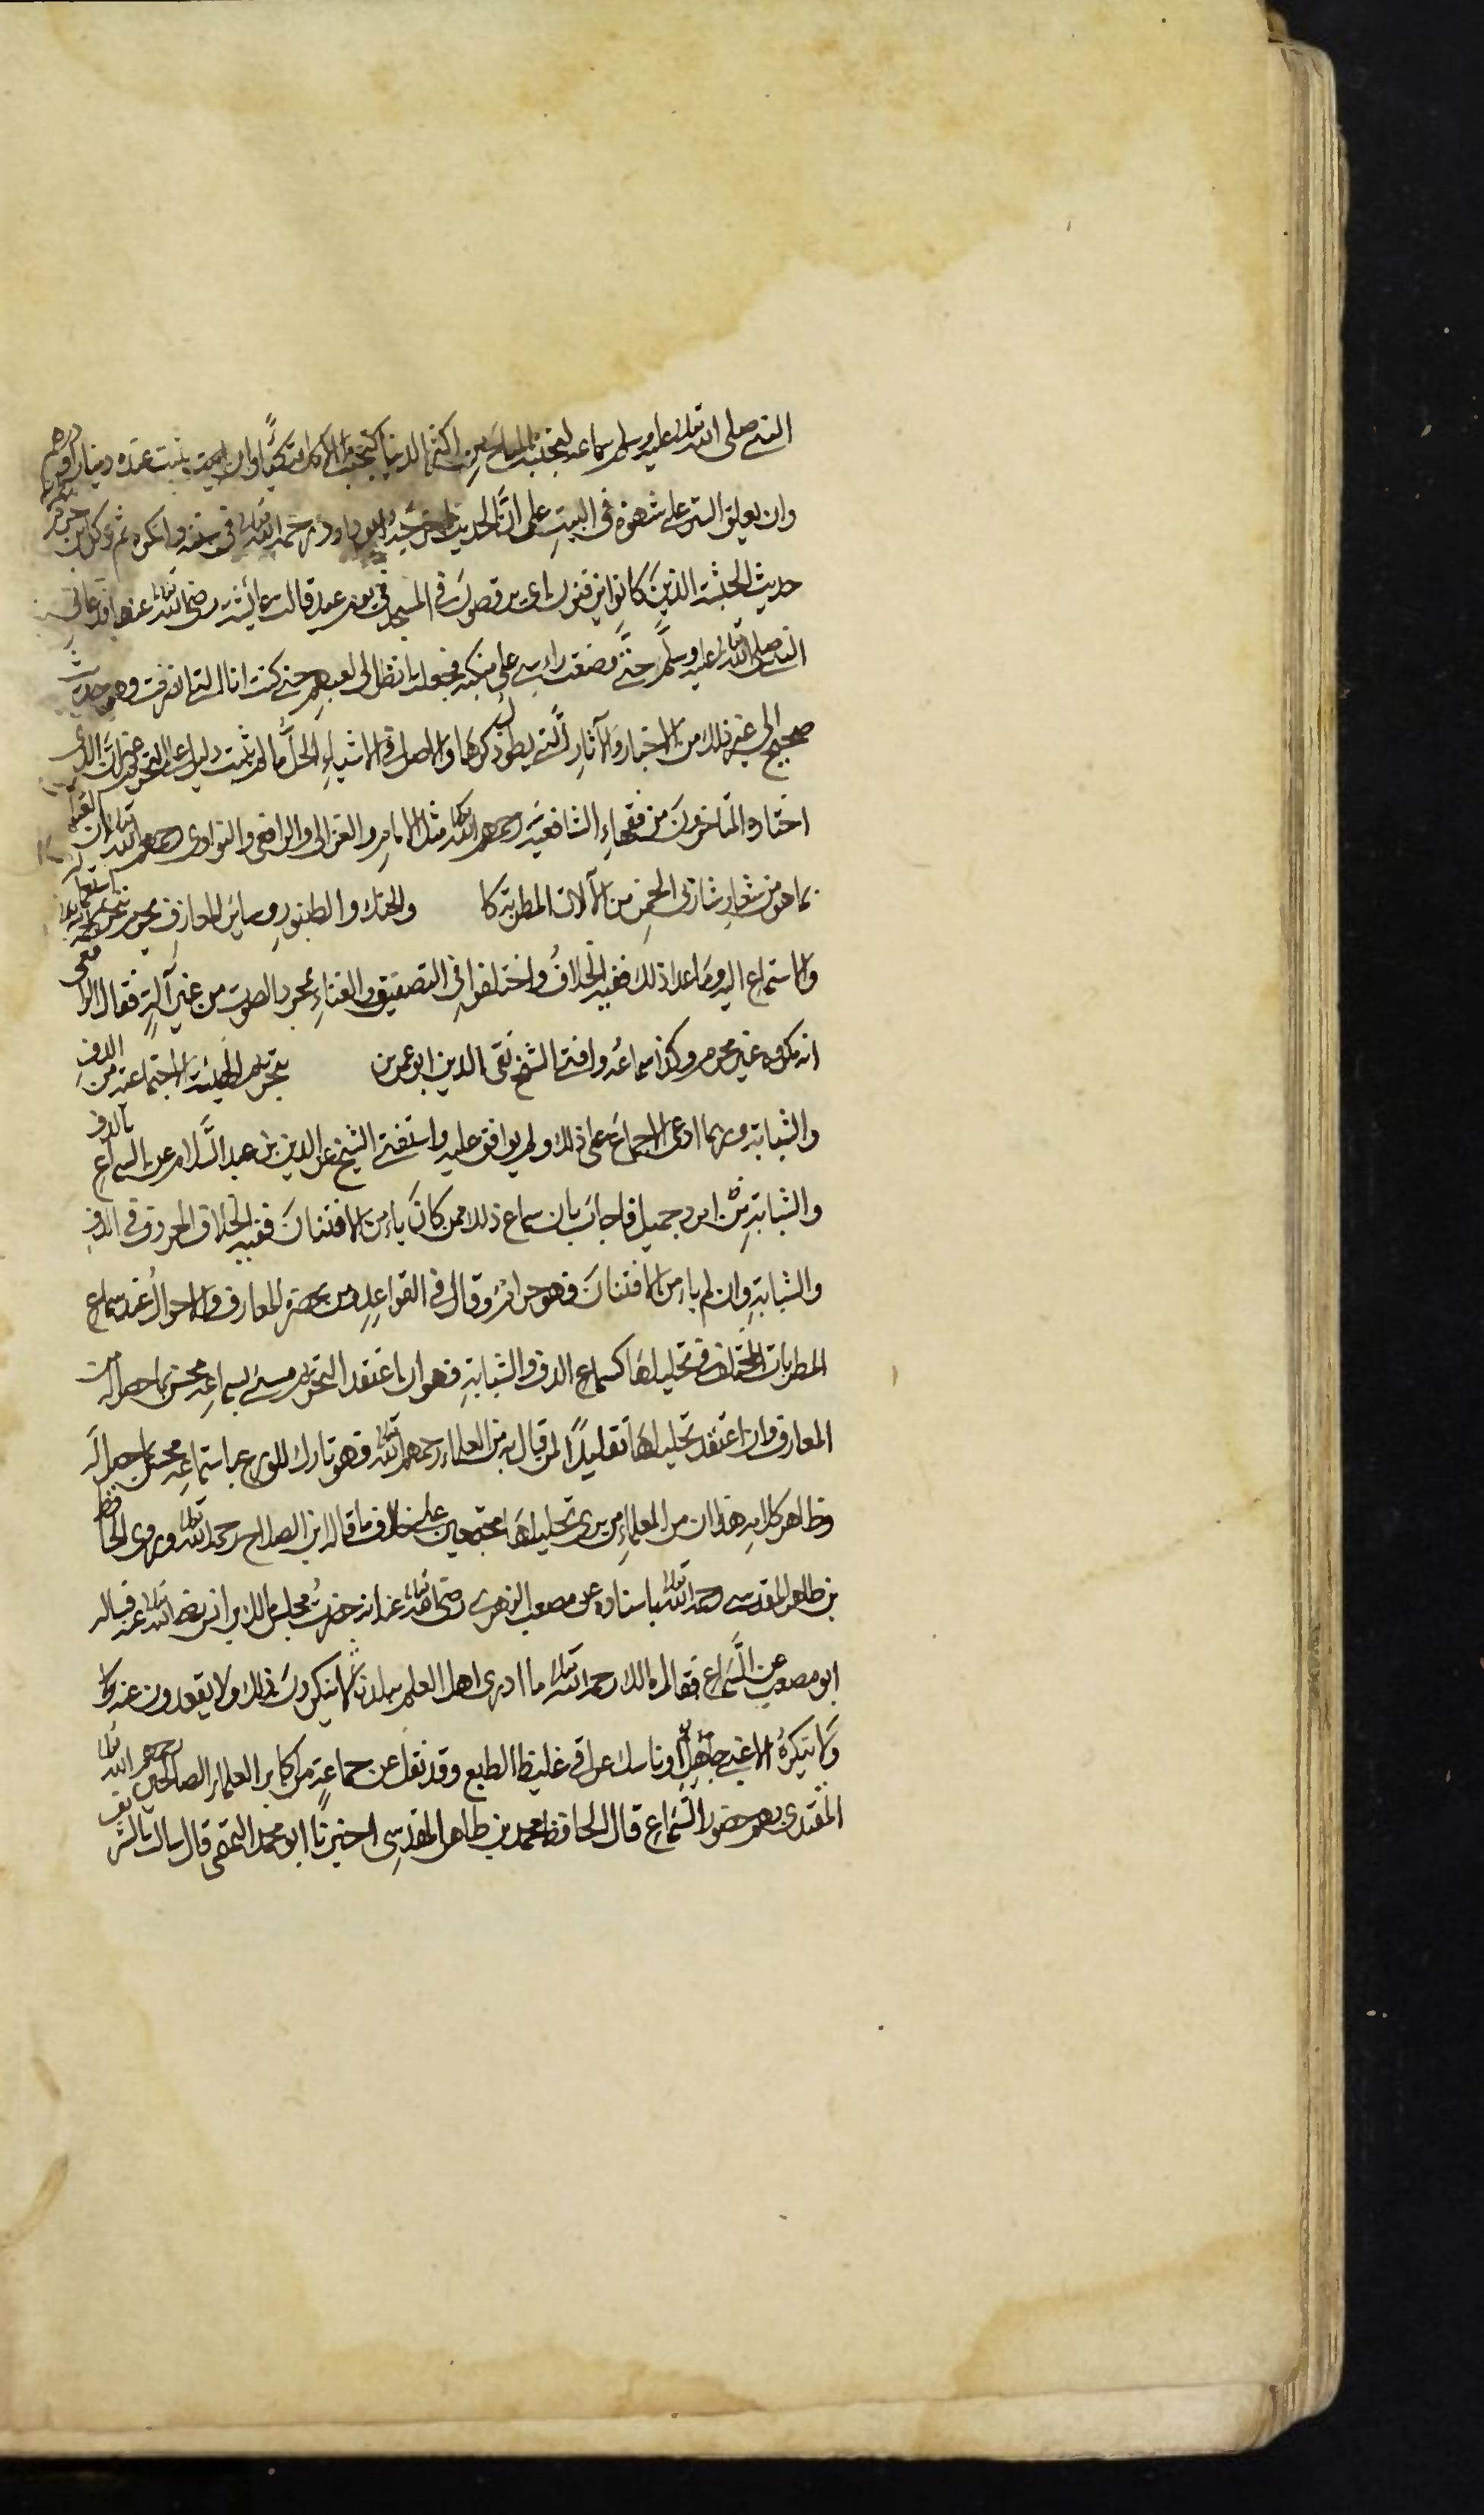 النبي صلى الله تعالى عليه وسلم سماعه لتجنبه المباح من اكثر الدنيا كتجنبه الاكل متكئا وان يبيت عنده دينار او درهم
وان يعلق الستر على سهوة في البيت على ان الحديث اخرجه ابو داود رحمه الله تعالى في سننه وانكره ثم ذكر
حديث الحبشة الذين كانوا يزفنون اي يرقصون في المسجد في يوم عيد قالت عائشة رضي الله تعالى عنها فدعاني
النبي صلى الله تعالى عليه وسلم حتى وضعت راسي على منكبه فجعلت انظر الى لعبهم حتى كنت انا التي انصرفت وهو حديث
صحيح الى غير ذلك من الاخبار والآثار التي يطول ذكرها والاصل في الاشياء الحل ما لم يثبت دليل على التحريم الذي
اختاره المتاخرون من فقهاء الشافعية رحمهم الله تعالى مثل الامام والغزالي والرافعي والنواوي رحمهم الله تعالى ان الغناء
بما هو من شعار شاربي الخمر من الآلات المطربة كا والجنك والطنبور وسائر المعازف يحرم استعماله
والاستماع اليه وما عدا ذلك ففيه الخلاف واختلفوا في التصفيق والغناء بمجرد الصوت من غير آلة فقال الرافعي
انه مكروه غير محرم وكذا سماعه وافتى الشيخ تقي الدين ابو عمرو بن بتحريم الهيئة الاجتماعية من الدف
والشبابة وربما ادعى الاجماع على ذلك ولم يوافق عليه واستفتي الشيخ عز الدين بن عبد السلام عن السماع بالدف
والشبابة من امرد جميل فاجاب بان سماع ذلك ممن كان يامن الافتنان ففيه الخلاف المعروف في الدف
والشبابة وان لم يامن الافتنان فهو حرام وقال في القواعد ومن يحضره المعارف والاحوال عند سماع
المطربات المختلف في تحليلها كسماع الدف والشبابة فهو ان اعتقد التحريم مسيء بسماعه محسن بما حصل له من
المعارف وان اعتقد تحليلها تقليدا لمن قال به من العلماء رحمهم الله تعالى فهو تارك للورع باستماعه محسن بما حصل له
وظاهر كلامه هذا ان من العلماء من يرى تحليلها مجتمعين على خلاف ما قاله ابن الصلاح رحمه الله تعالى وروى الحافظ
بن طاهر المقدسي رحمه الله تعالى باسناده عن مصعب الزهري رضي الله تعالى عنه انه حضر مجلس مالك بن انس رضي الله تعالى عنه فساله
ابو مصعب عن السماع فقال مالك رحمه الله تعالى ما ادري اهل العلم ببلدنا لا ينكرون ذلك ولا يقعدون عنه
ولا ينكره الا غبي جاهل او ناسك عراقي غليظ الطبع وقد نقل عن جماعة من اكابر العلماء الصالحين رحمهم الله تعالى
المقتدى بهم حضور السماع قال الحافظ محمد بن طاهر المقدسي اخبرنا ابو محمد التميمي قال سالت الشريف